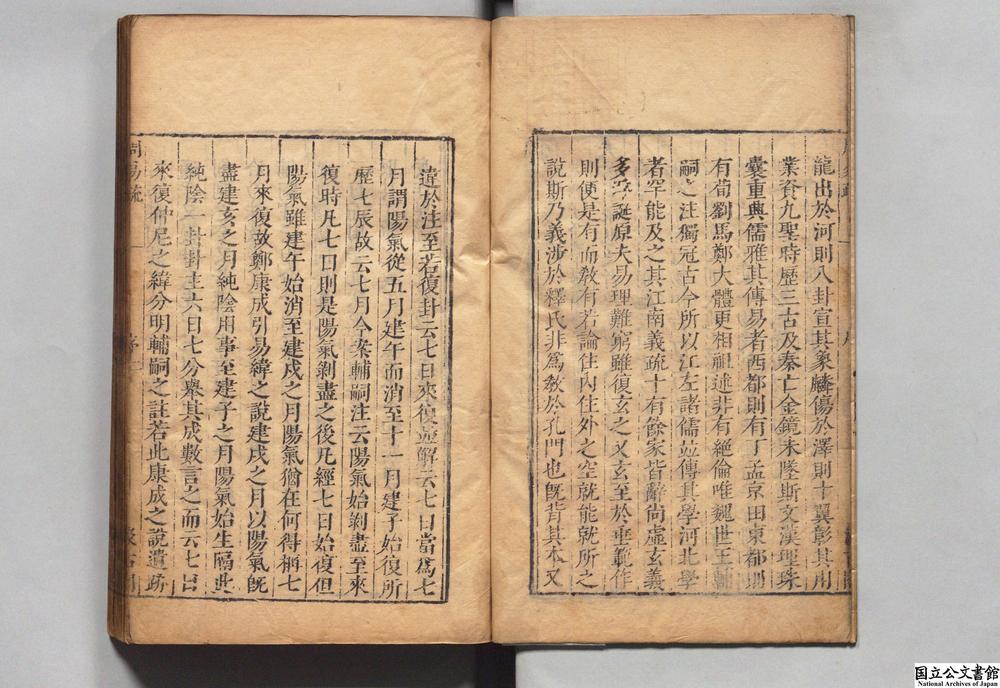 龍出於河則八卦宣其象麟傷於澤則十翼彰其用
業資九聖時歷三古及秦亡金鏡未墜斯文漢理珠
囊重興儒雅其傳易者西都則有丁孟京田東都則
有荀劉馬鄭大體更相祖述非有絶倫唯魏世王輔
嗣之注獨冠古今所以江左諸儒並傳其學河北學
者罕能及之其江南義疏十有餘家皆辭尚虛玄義
多浮誕原夫易理難窮雖復玄之又玄至於垂範作
則便是有而敎有若論住内住外之空就能就所之
說斯乃義涉於釋氏非爲敎於孔門也旣背其本又
違於注至若復卦云七日來復並解云七日當爲七
月謂陽氣從五月建午而消至十一月建子始復所
歷七辰故云七月今案輔嗣注云陽氣始剝盡至來
復時凡七日則是陽氣剝盡之後凡經七日始復但
陽氣雖建午始消至建戌之月陽氣猶在何得稱七
月來復故鄭康成引易緯之說建戌之月以陽氣旣
盡建亥之月純陰用事至建子之月陽氣始生隔此
純陰一卦卦主六日七分舉其成數言之而云七日
來復仲尼之緯分明輔嗣之註若此康成之說遺跡
周易疏
序
國立公文書館
National Archives of Japan